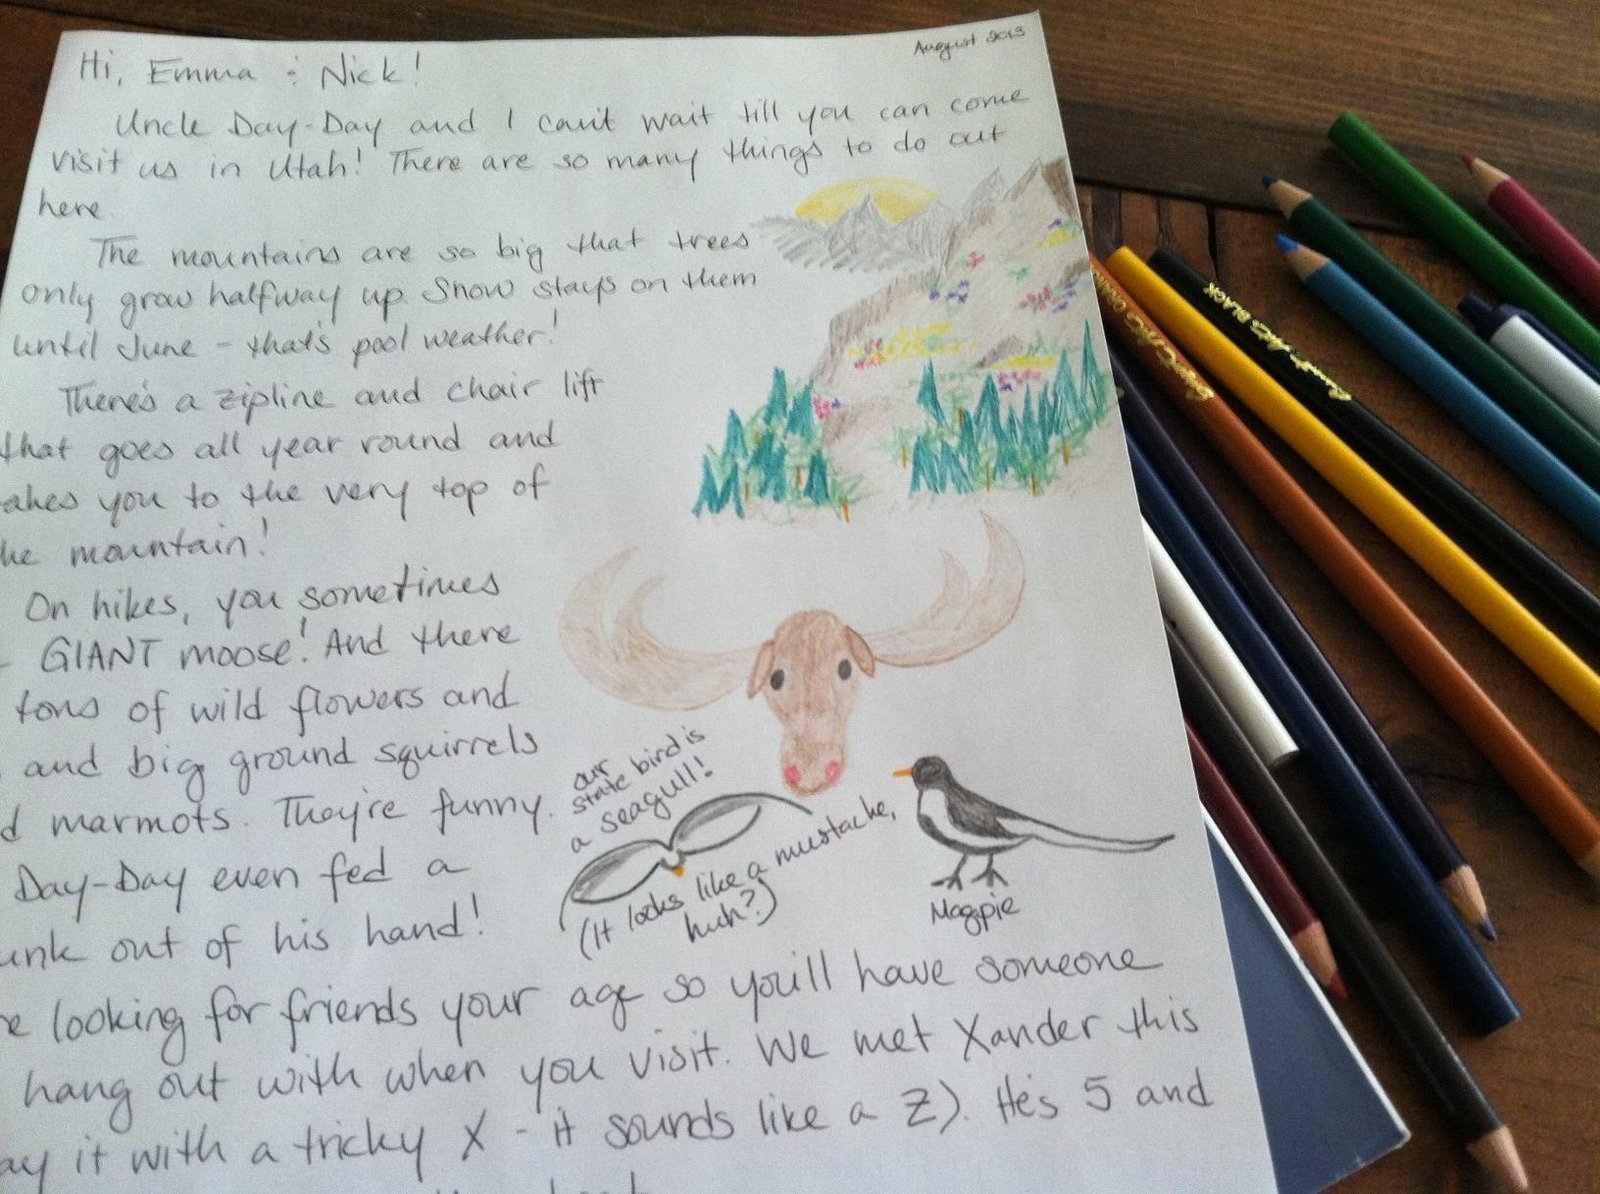 August 2013
Hi, Emma & Nick!
Uncle Day-Day and I can't wait till you can come
visit us in Utah! There are so many things to do out
here.
The mountains are so big that trees
only grow halfway up. Snow stays on them
until June - that's pool weather!
There's a zipline and chair lift
that goes all year round and
akes you to the very top of
he mountain!
On hikes, you sometimes
GIANT moose! And there
tons of wild flowers and
and big ground squirrels
d marmots. They're funny.
Day-Day even fed a
unk out of his hand!
e looking for friends your age so you'll have someone
hang out with when you visit. We met Xander this
ay it with a tricky X - it sounds like a Z). He's 5 and
our
state bird is
a seagull!
(It looks like a mustache,
huh?)
Magpie
BLACK